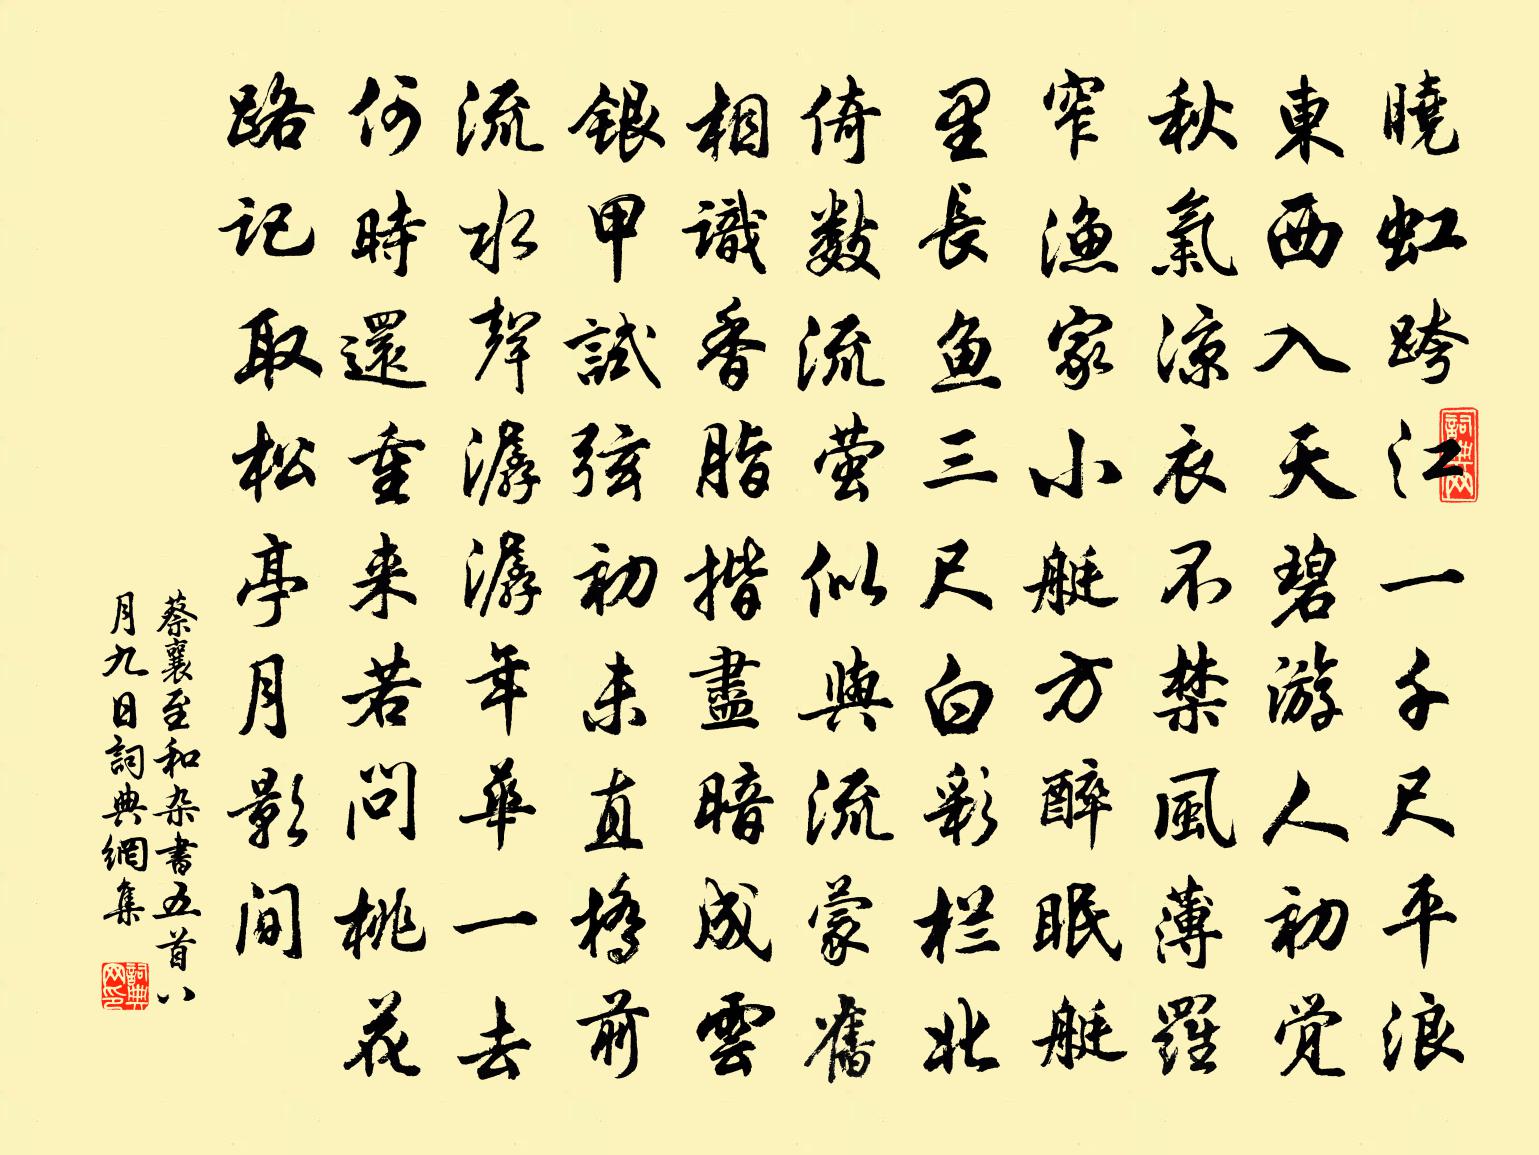 曉虹跨江一千尺平浪
東西入天碧游人初觉
秋氣凉衣不禁風薄羅
窄漁家小艇方醉眠艇
里長魚三尺白彩栏北
倚數流萤似與流蒙舊
相識香脂揩盡暗成雲
銀甲試弦初未直橋前
流水聲潺潺年華一去
何時還重来若问桃花
路记取松亭月影间
蔡襄至和杂書五首八
月九日詞典網集
詞典网
詞典网印